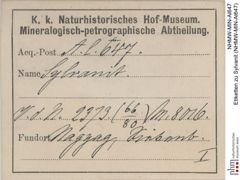 K. k. Naturhistorisches Hof-Museum.
Mineralogisch-petrographische Abtheilung.
Acq.-Post A. l. 647.
Name Sylvanit.
2373. (66/80) Sm. 8016.
Fundort Nagyag, Siebenb.
I
NHMW-MIN-A1647
Etiketten zu Sylvanit (NHMW-MIN-A1647)